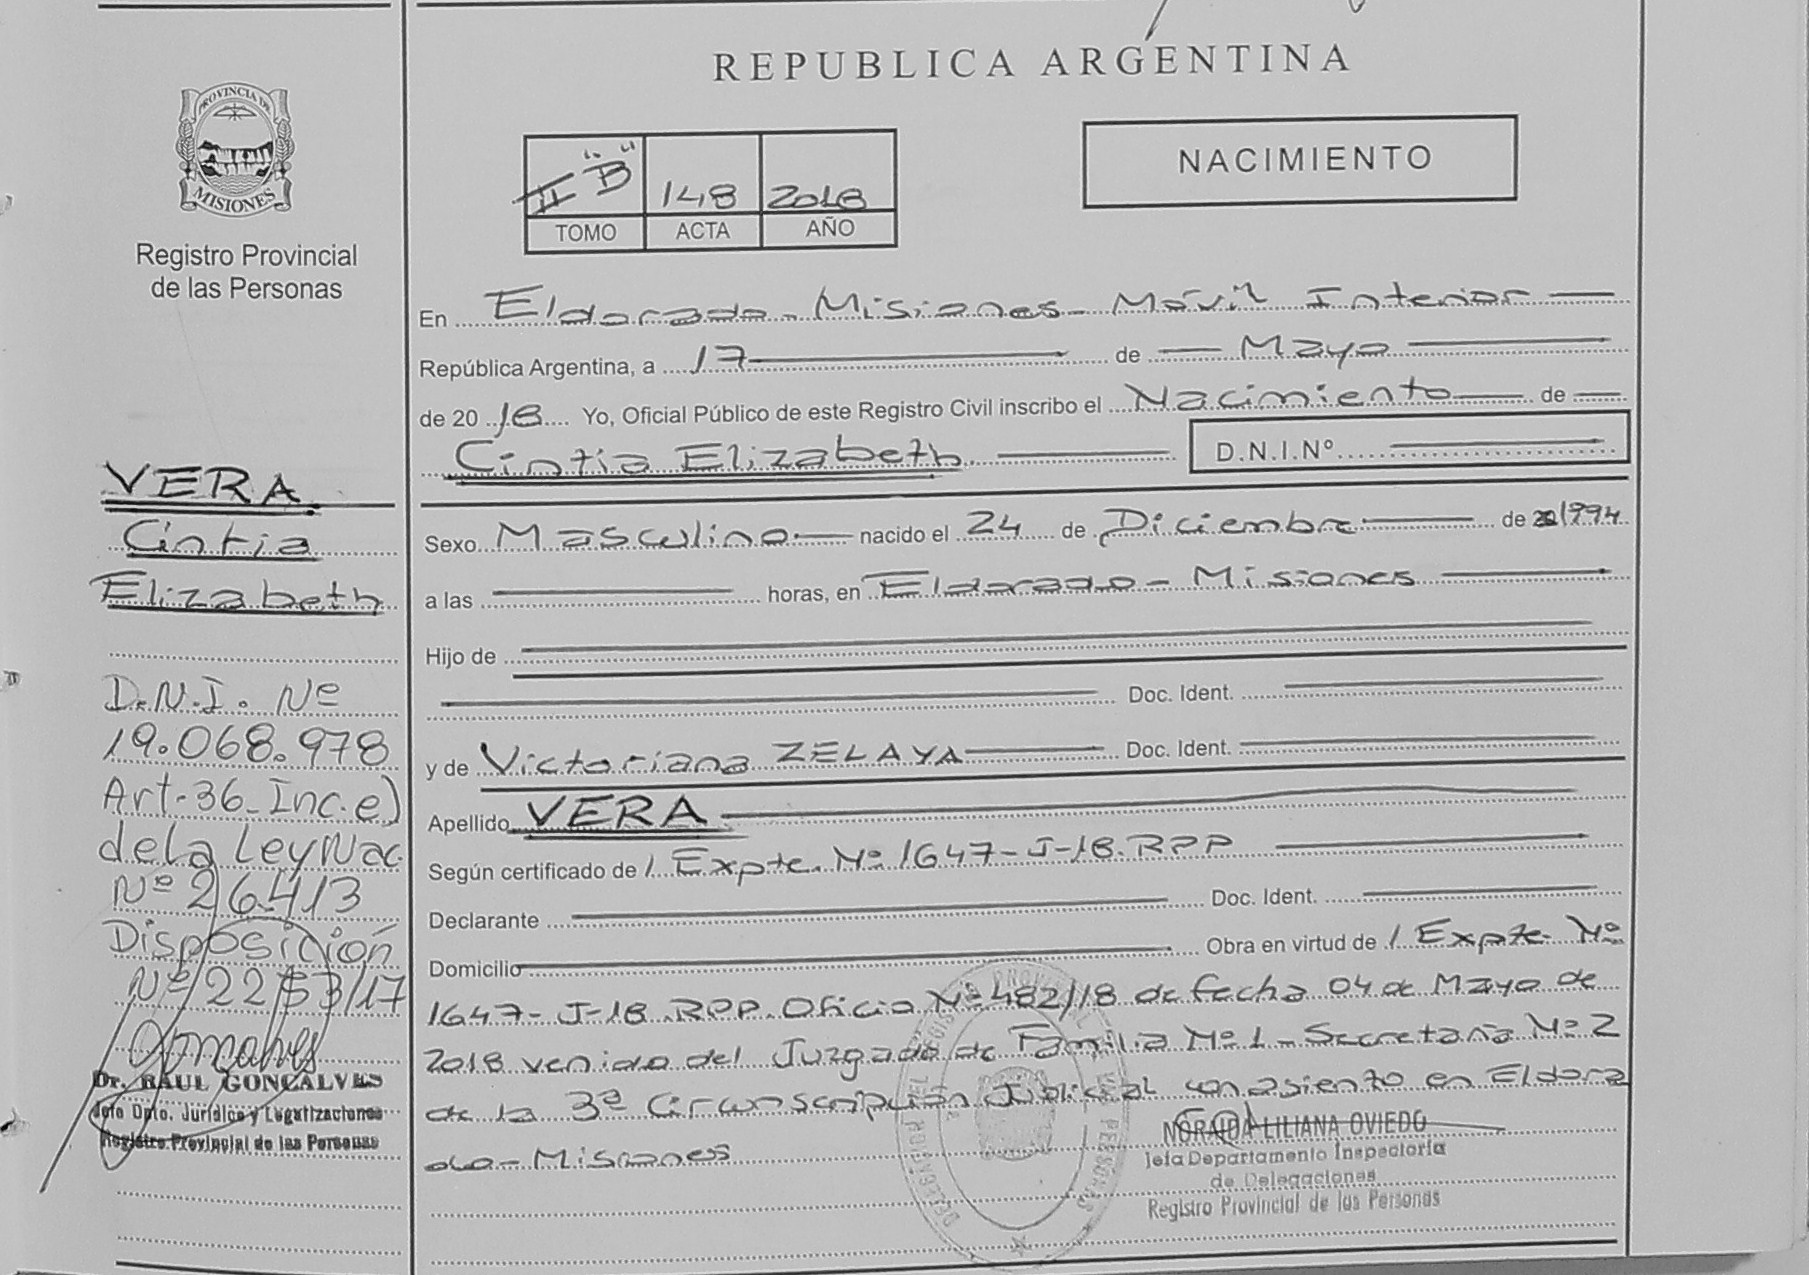 PROVINCIA DE
MISIONES
Registro Provincial
de las Personas
VERA
Cintia
Elizabeth
D.N.I. Nº
19.068.978
Art-36-Inc.e)
de la Ley Nac.
Nº 26.413
Disposición
Nº 2253/17
Dr. RAUL GONCALVES
Jefe Dpto. Jurídico y Legalizaciones
Registro Provincial de las Personas
REPUBLICA ARGENTINA
II "B" 148 2018
TOMO ACTA AÑO
NACIMIENTO
En Eldorado - Misiones - Móvil Interior
República Argentina, a 17 de Mayo
de 20 18 Yo, Oficial Público de este Registro Civil inscribo el Nacimiento de
Cintia Elizabeth D.N.I.Nº
Sexo Masculino nacido el 24 de Diciembre de 1994
a las horas, en Eldorado - Misiones
Hijo de
Doc. Ident.
y de Victoriana ZELAYA Doc. Ident.
Apellido VERA
Según certificado de / Expte. Nº 1647-J-18.RPP
Declarante Doc. Ident.
Domicilio Obra en virtud de / Expte. Nº
1647-J-18.RPP. Oficio Nº 482/18 de fecha 04 de Mayo de
2018 venido del Juzgado de Familia Nº 1 - Secretaría Nº 2
de la 3ª Circunscripción Judicial con asiento en Eldora
do - Misiones
NORAIDA LILIANA OVIEDO
Jefa Departamento Inspectoría
de Delegaciones
Registro Provincial de las Personas